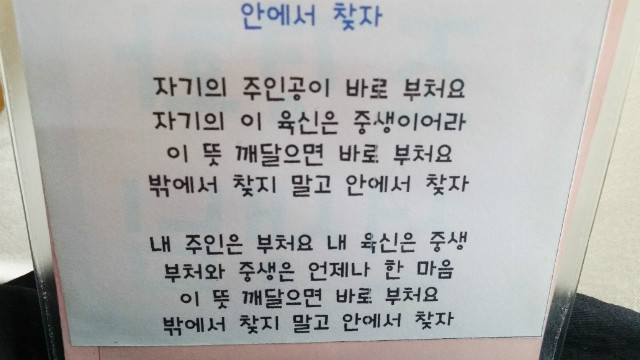 안에서 찾자
자기의 주인공이 바로 부처요
자기의 이 육신은 중생이어라
이 뜻 깨달으면 바로 부처요
밖에서 찾지 말고 안에서 찾자
내 주인은 부처요 내 육신은 중생
부처와 중생은 언제나 한 마음
이 뜻 깨달으면 바로 부처요
밖에서 찾지 말고 안에서 찾자